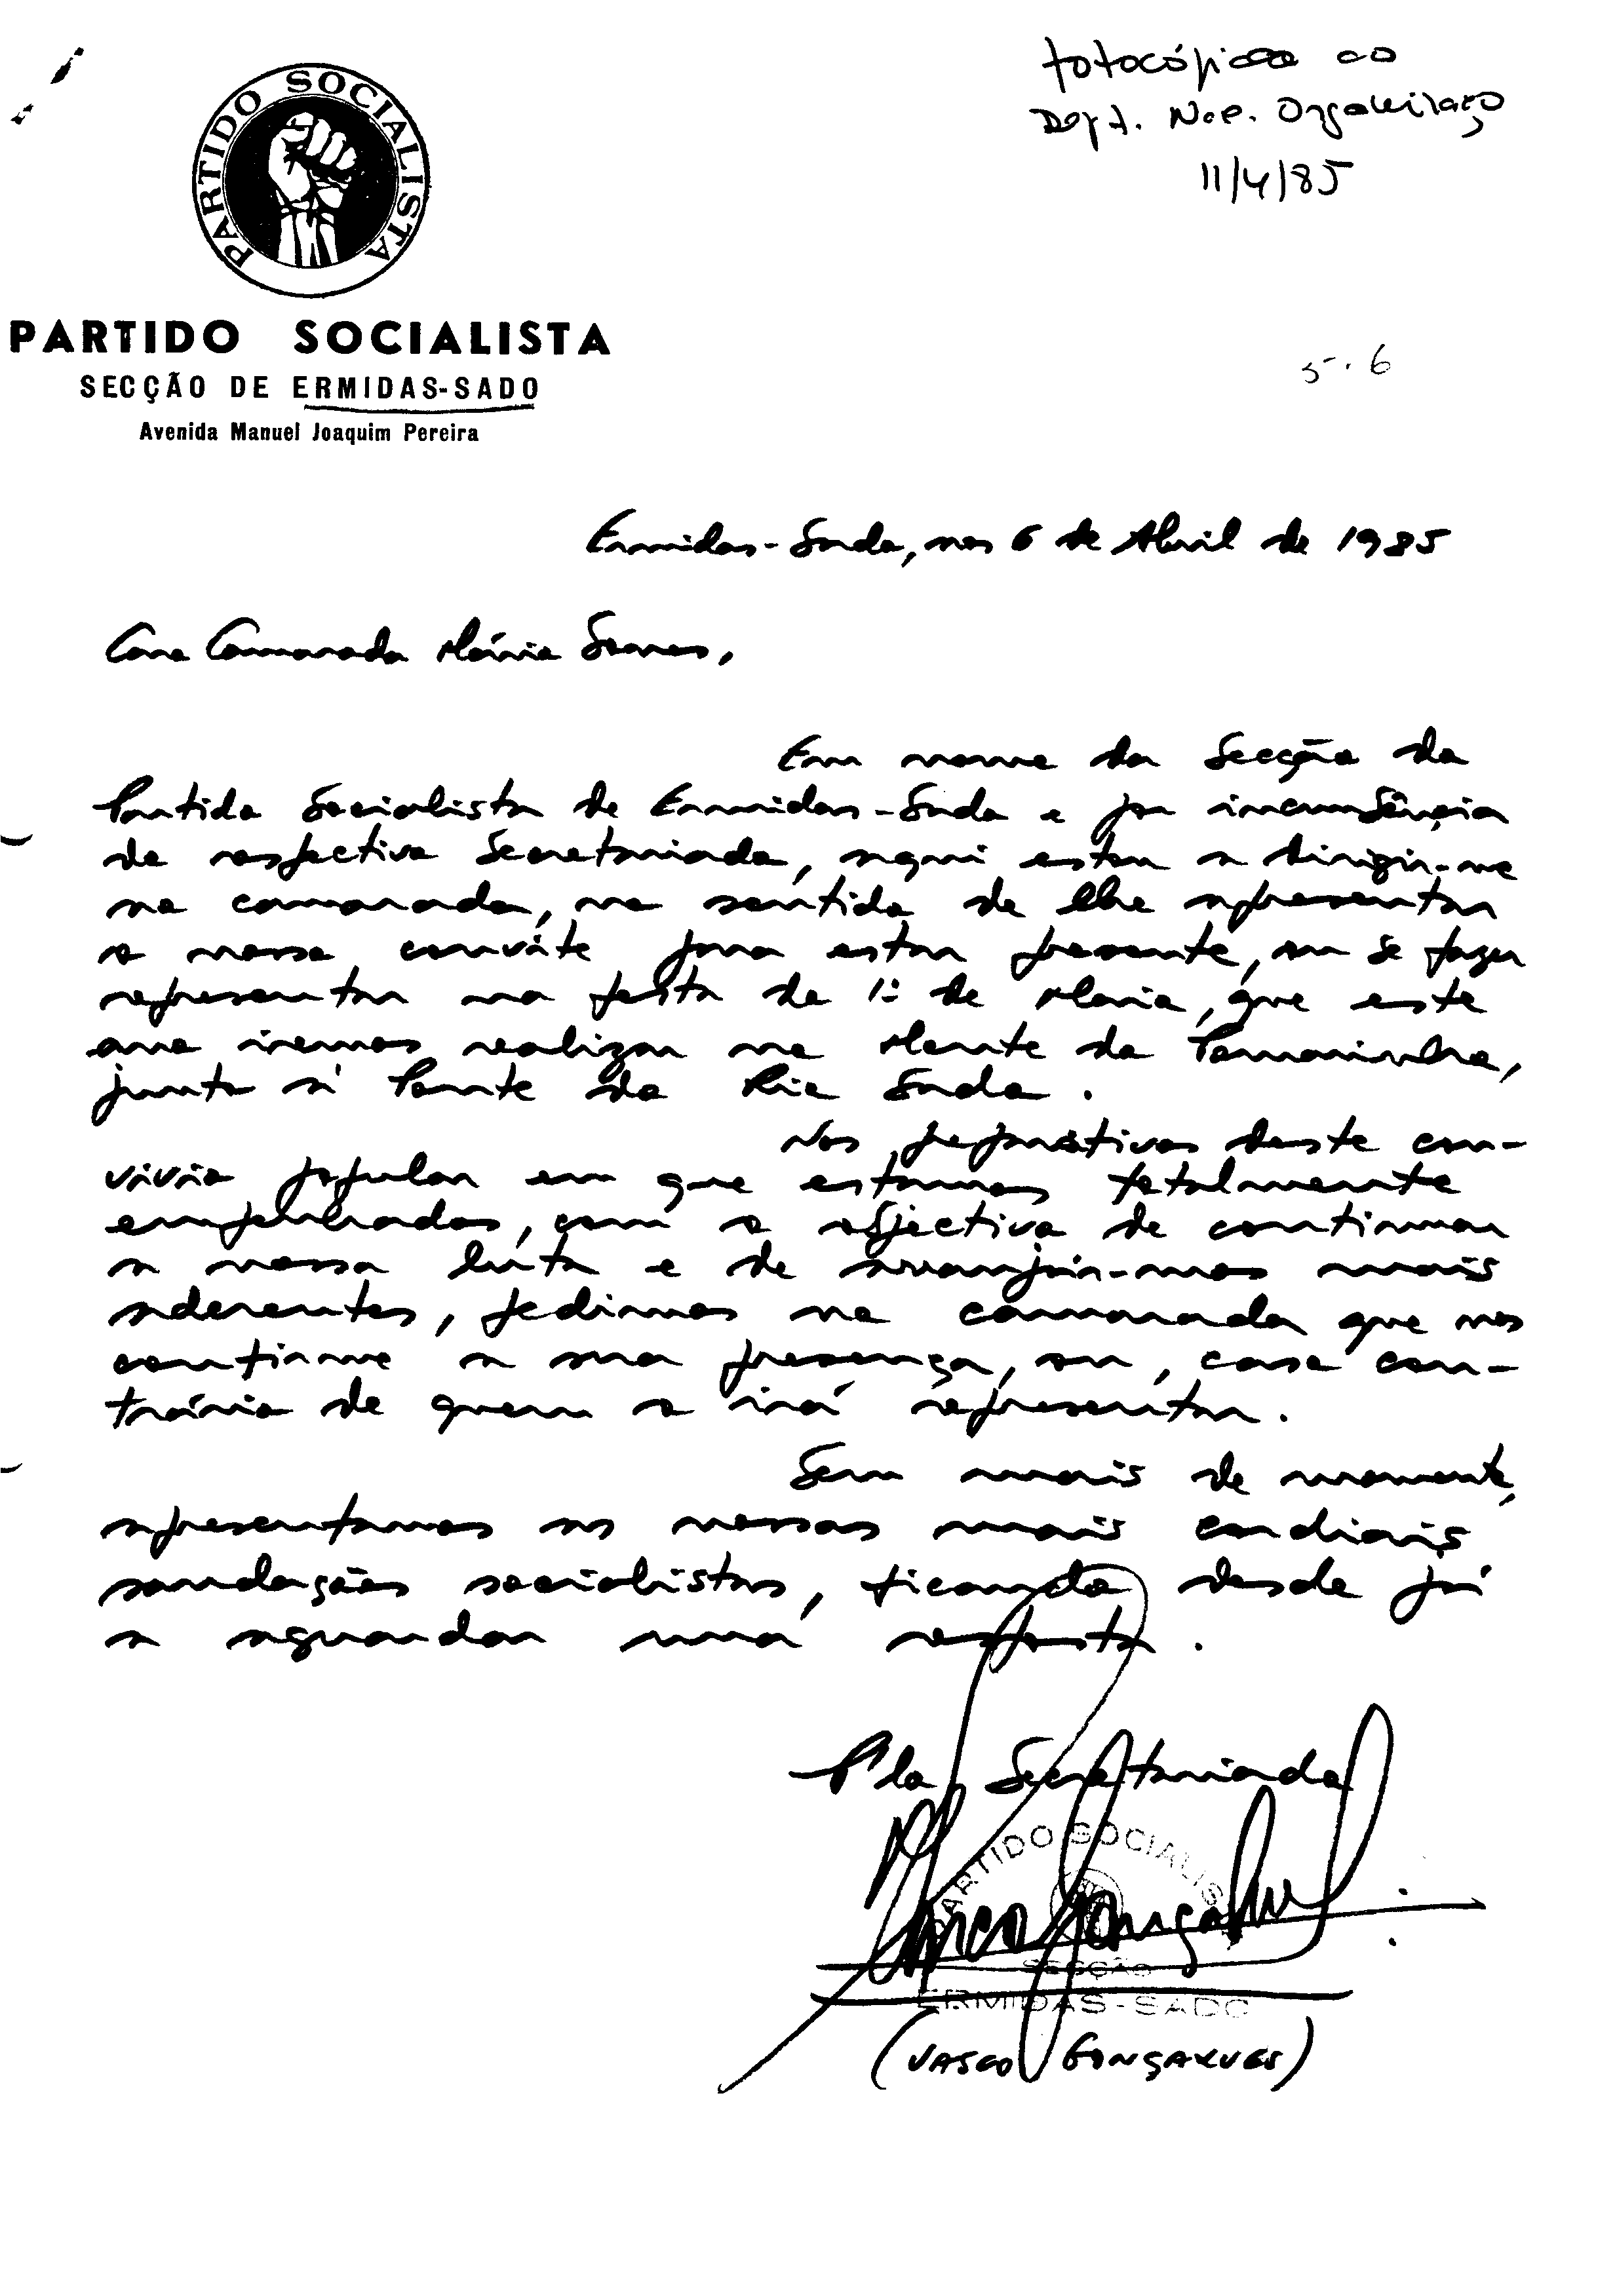 fotocópia ao
Dept. Nac. Organização
11/4/85
PARTIDO SOCIALISTA
PARTIDO SOCIALISTA
SECÇÃO DE ERMIDAS-SADO
Avenida Manuel Joaquim Pereira
5.6
Ermidas-Sado, aos 6 de Abril de 1985
Caro Camarada Mário Soares,
Em nome da Secção do
Partido Socialista de Ermidas-Sado e por incumbência
do respectivo Secretariado, aqui estou a dirigir-me
ao camarada, no sentido de lhe apresentar
o nosso convite para estar presente, ou se fazer
representar na festa do 1º de Maio, que este
ano iremos realizar no Monte da Tamarinha,
junto à Ponte do Rio Sado.
Nos preparativos deste con-
vívio popular em que estamos totalmente
empenhados, com o objectivo de continuar
a nossa luta e de arranjár-mos mais
aderentes, pedimos ao camarada que nos
confirme a sua presença, ou, caso con-
trário de quem o irá representar.
Sem mais de momento,
apresentamos as nossas mais cordiais
saudações socialistas, ficando desde já
a aguardar uma resposta.
P'lo Secretariado
PARTIDO SOCIALIS
Vasco Gonçalves
SECÇÃO
ERMIDAS-SADO
(VASCO GONÇALVES)